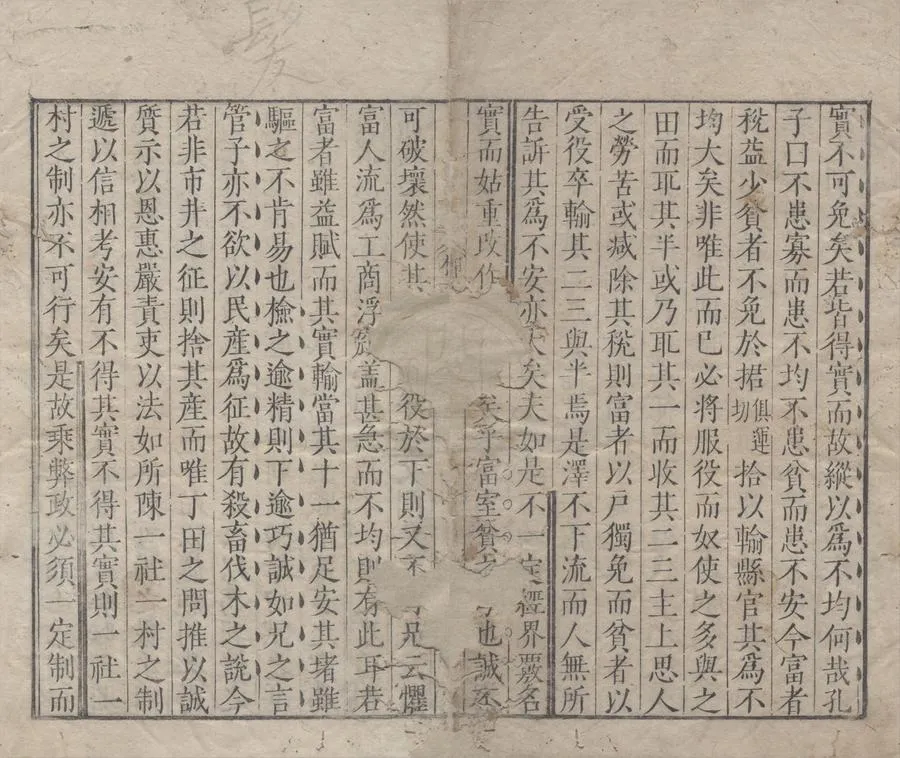 實不可免矣若皆得實而故縱以爲不均何哉孔
子曰不患寡而患不均不患貧而患不安今富者
稅益少貧者不免於捃俱運切拾以輸縣官其爲不
均大矣非唯此而已必將服役而奴使之多與之
田而取其半或乃取其一而收其二三主上思人
之勞苦或減除其稅則富者以戶獨免而貧者以
受役卒輸其二三與半焉是澤不下流而人無所
告訴其爲不安亦大矣夫如是不一定經界覈名
實而姑重改作矣乎富室貧也誠不
可破壞然使其役於下則又不足云懼
富人流爲工商浮窳蓋甚急而不均則有此耳若
富者雖益賦而其實輸當其十一猶足安其堵雖
驅之不肯易也檢之逾精則下逾巧誠如兄之言
管子亦不欲以民產爲征故有殺畜伐木之說今
若非市井之征則捨其產而唯丁田之問推以誠
質示以恩惠嚴責吏以法如所陳一社一村之制
遞以信相考安有不得其實不得其實則一社一
村之制亦不可行矣是故乘弊政必須一定制而